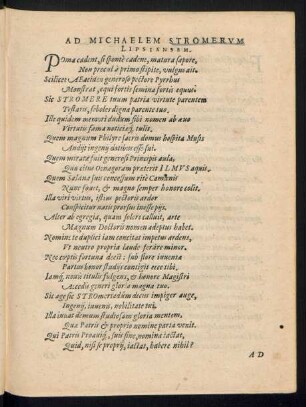 AD MICHAELEM STROMERVM
LIPSIENSEM.
POma cadent, si sponte cadent, matura sapore,
Non procul à primo stipite, vulgus ait.
Scilicet Æacidem generoso pectore Pyrrhus
Monstrat, equi fortis semina fortis equus:
Sic STROMERE tuum patria virtute parentem
Testaris, soboles digna parente tuo,
Ille quidem meruit dudum sibi nomen ab auo
Virtutis fama noticiaq; tulit.
Quem magnum Philyræ sacra domus hospita Musis
Audijt ingenij dotibus esse sui.
Quem mirata fuit generosi Principis aula,
Qua citus Oenogarum præterit ILMVS aquis.
Quem Salana suis censorum rite Camœnis
Nunc fouet, & magno semper honore colit.
Illa viri virtus, istius pectoris ardor
Conspicitur natis prorsus inesse pijs.
Alter ab egregia, quam solers calluit, arte
Magnum Doctoris nomen adeptus habet.
Nomine te duplici iam concitat impetus ardens,
Vt uestro propria laude ferare minor.
Nec cœptis fortuna deest: sub flore inuentæ
Partus honor studijs contigit ecce tibi,
Iamq; noui titulis fulgens, & honore Magistri
Accedis generi gloria magna tuo.
Sic age sic STROmeræum decus impiger auge,
Ingenij, iuuenis, nobilitate tui,
Illa iuuat demum studiosam gloria mentem,
Qua Patrij & proprio nomine parta venit.
Qui Patris Proauiq́;, suis sine, nomina iactat,
Quid, nisi se proprij, iactat, habere nihil?
AD